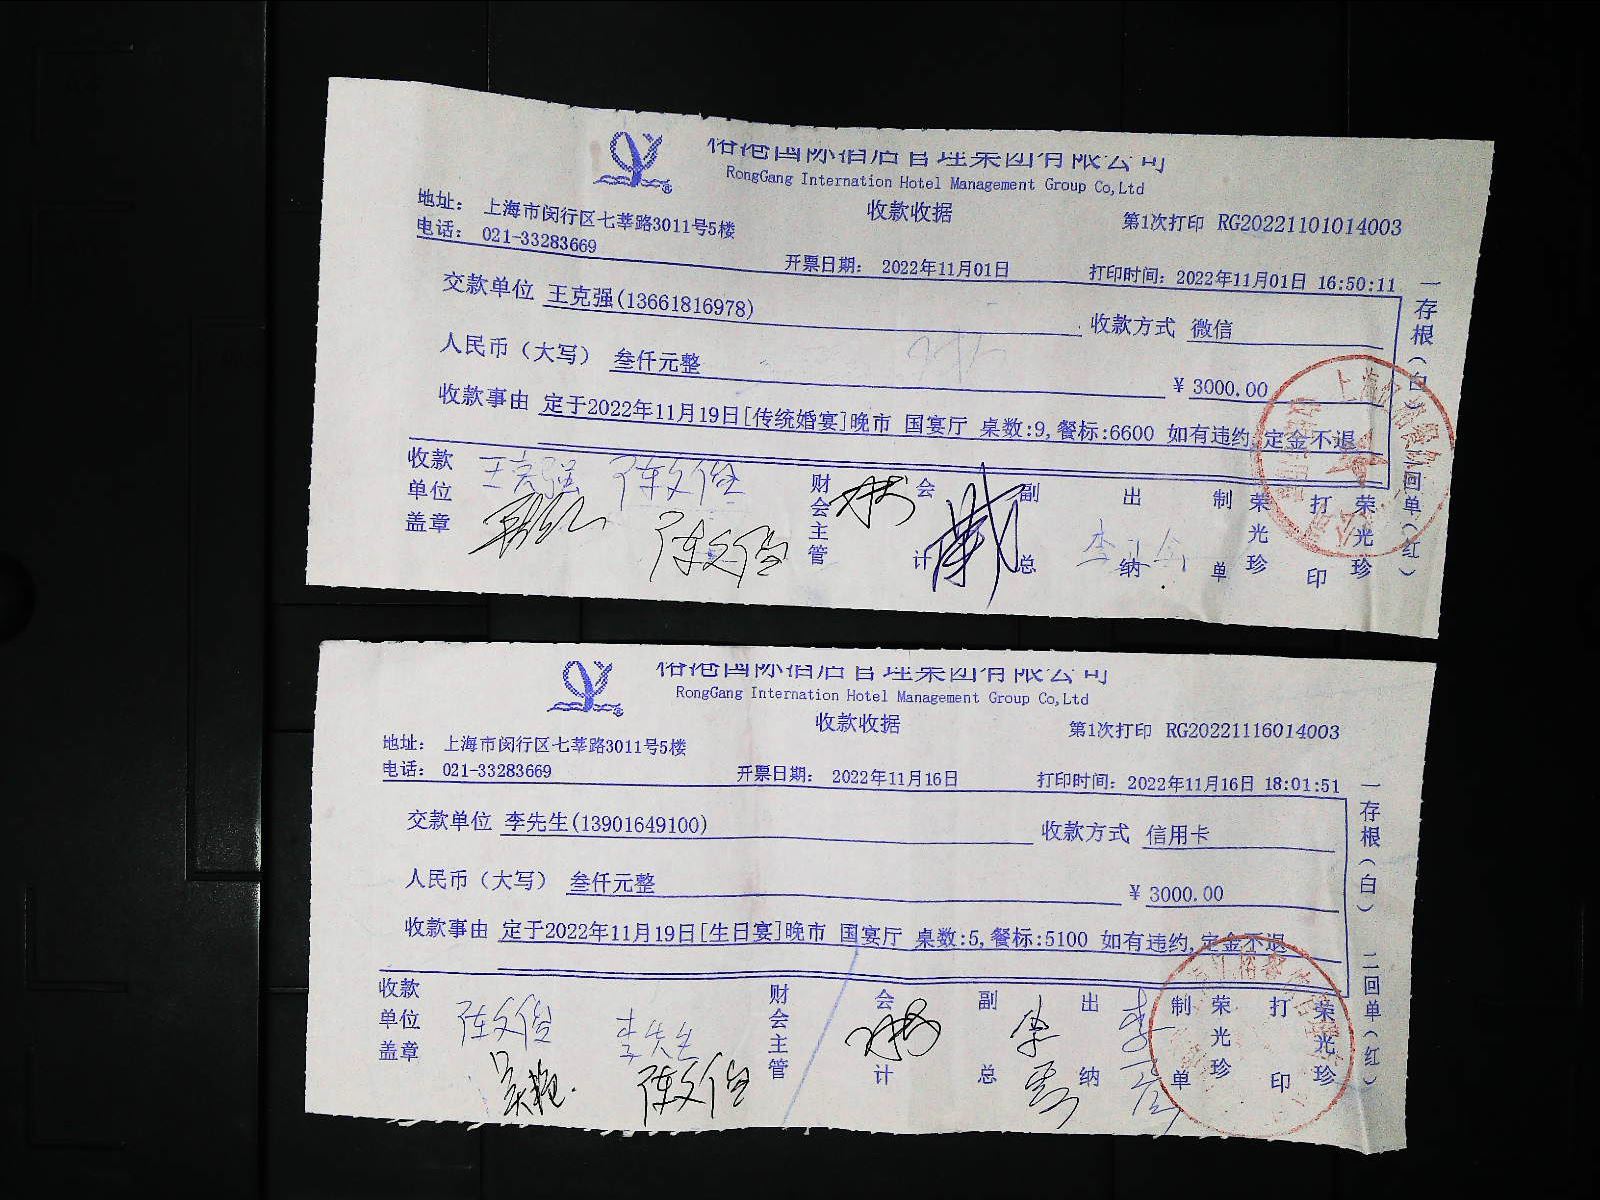 裕港国际酒店管理集团有限公司
RongGang Internation Hotel Management Group Co,Ltd
收款收据
第1次打印 RG20221101014003
地址: 上海市闵行区七莘路3011号5楼
电话: 021-33283669
开票日期: 2022年11月01日
打印时间: 2022年11月01日 16:50:11
交款单位 王克强(13661816978)
收款方式 微信
人民币（大写） 叁仟元整
¥ 3000.00
收款事由 定于2022年11月19日[传统婚宴]晚市 国宴厅 桌数:9,餐标:6600 如有违约,定金不退
一存根(白) 二回单(红)
收款单位盖章 王克强 陈文俊
陈文俊
财会主管
会计
副总
出纳
制单 荣光珍
打印 荣光珍
裕港国际酒店管理集团有限公司
RongGang Internation Hotel Management Group Co,Ltd
收款收据
第1次打印 RG20221116014003
地址: 上海市闵行区七莘路3011号5楼
电话: 021-33283669
开票日期: 2022年11月16日
打印时间: 2022年11月16日 18:01:51
交款单位 李先生(13901649100)
收款方式 信用卡
人民币（大写） 叁仟元整
¥ 3000.00
收款事由 定于2022年11月19日[生日宴]晚市 国宴厅 桌数:5,餐标:5100 如有违约,定金不退
一存根(白) 二回单(红)
收款单位盖章 陈文俊 李先生
陈文俊
财会主管
会计
副总
出纳
制单 荣光珍
打印 荣光珍